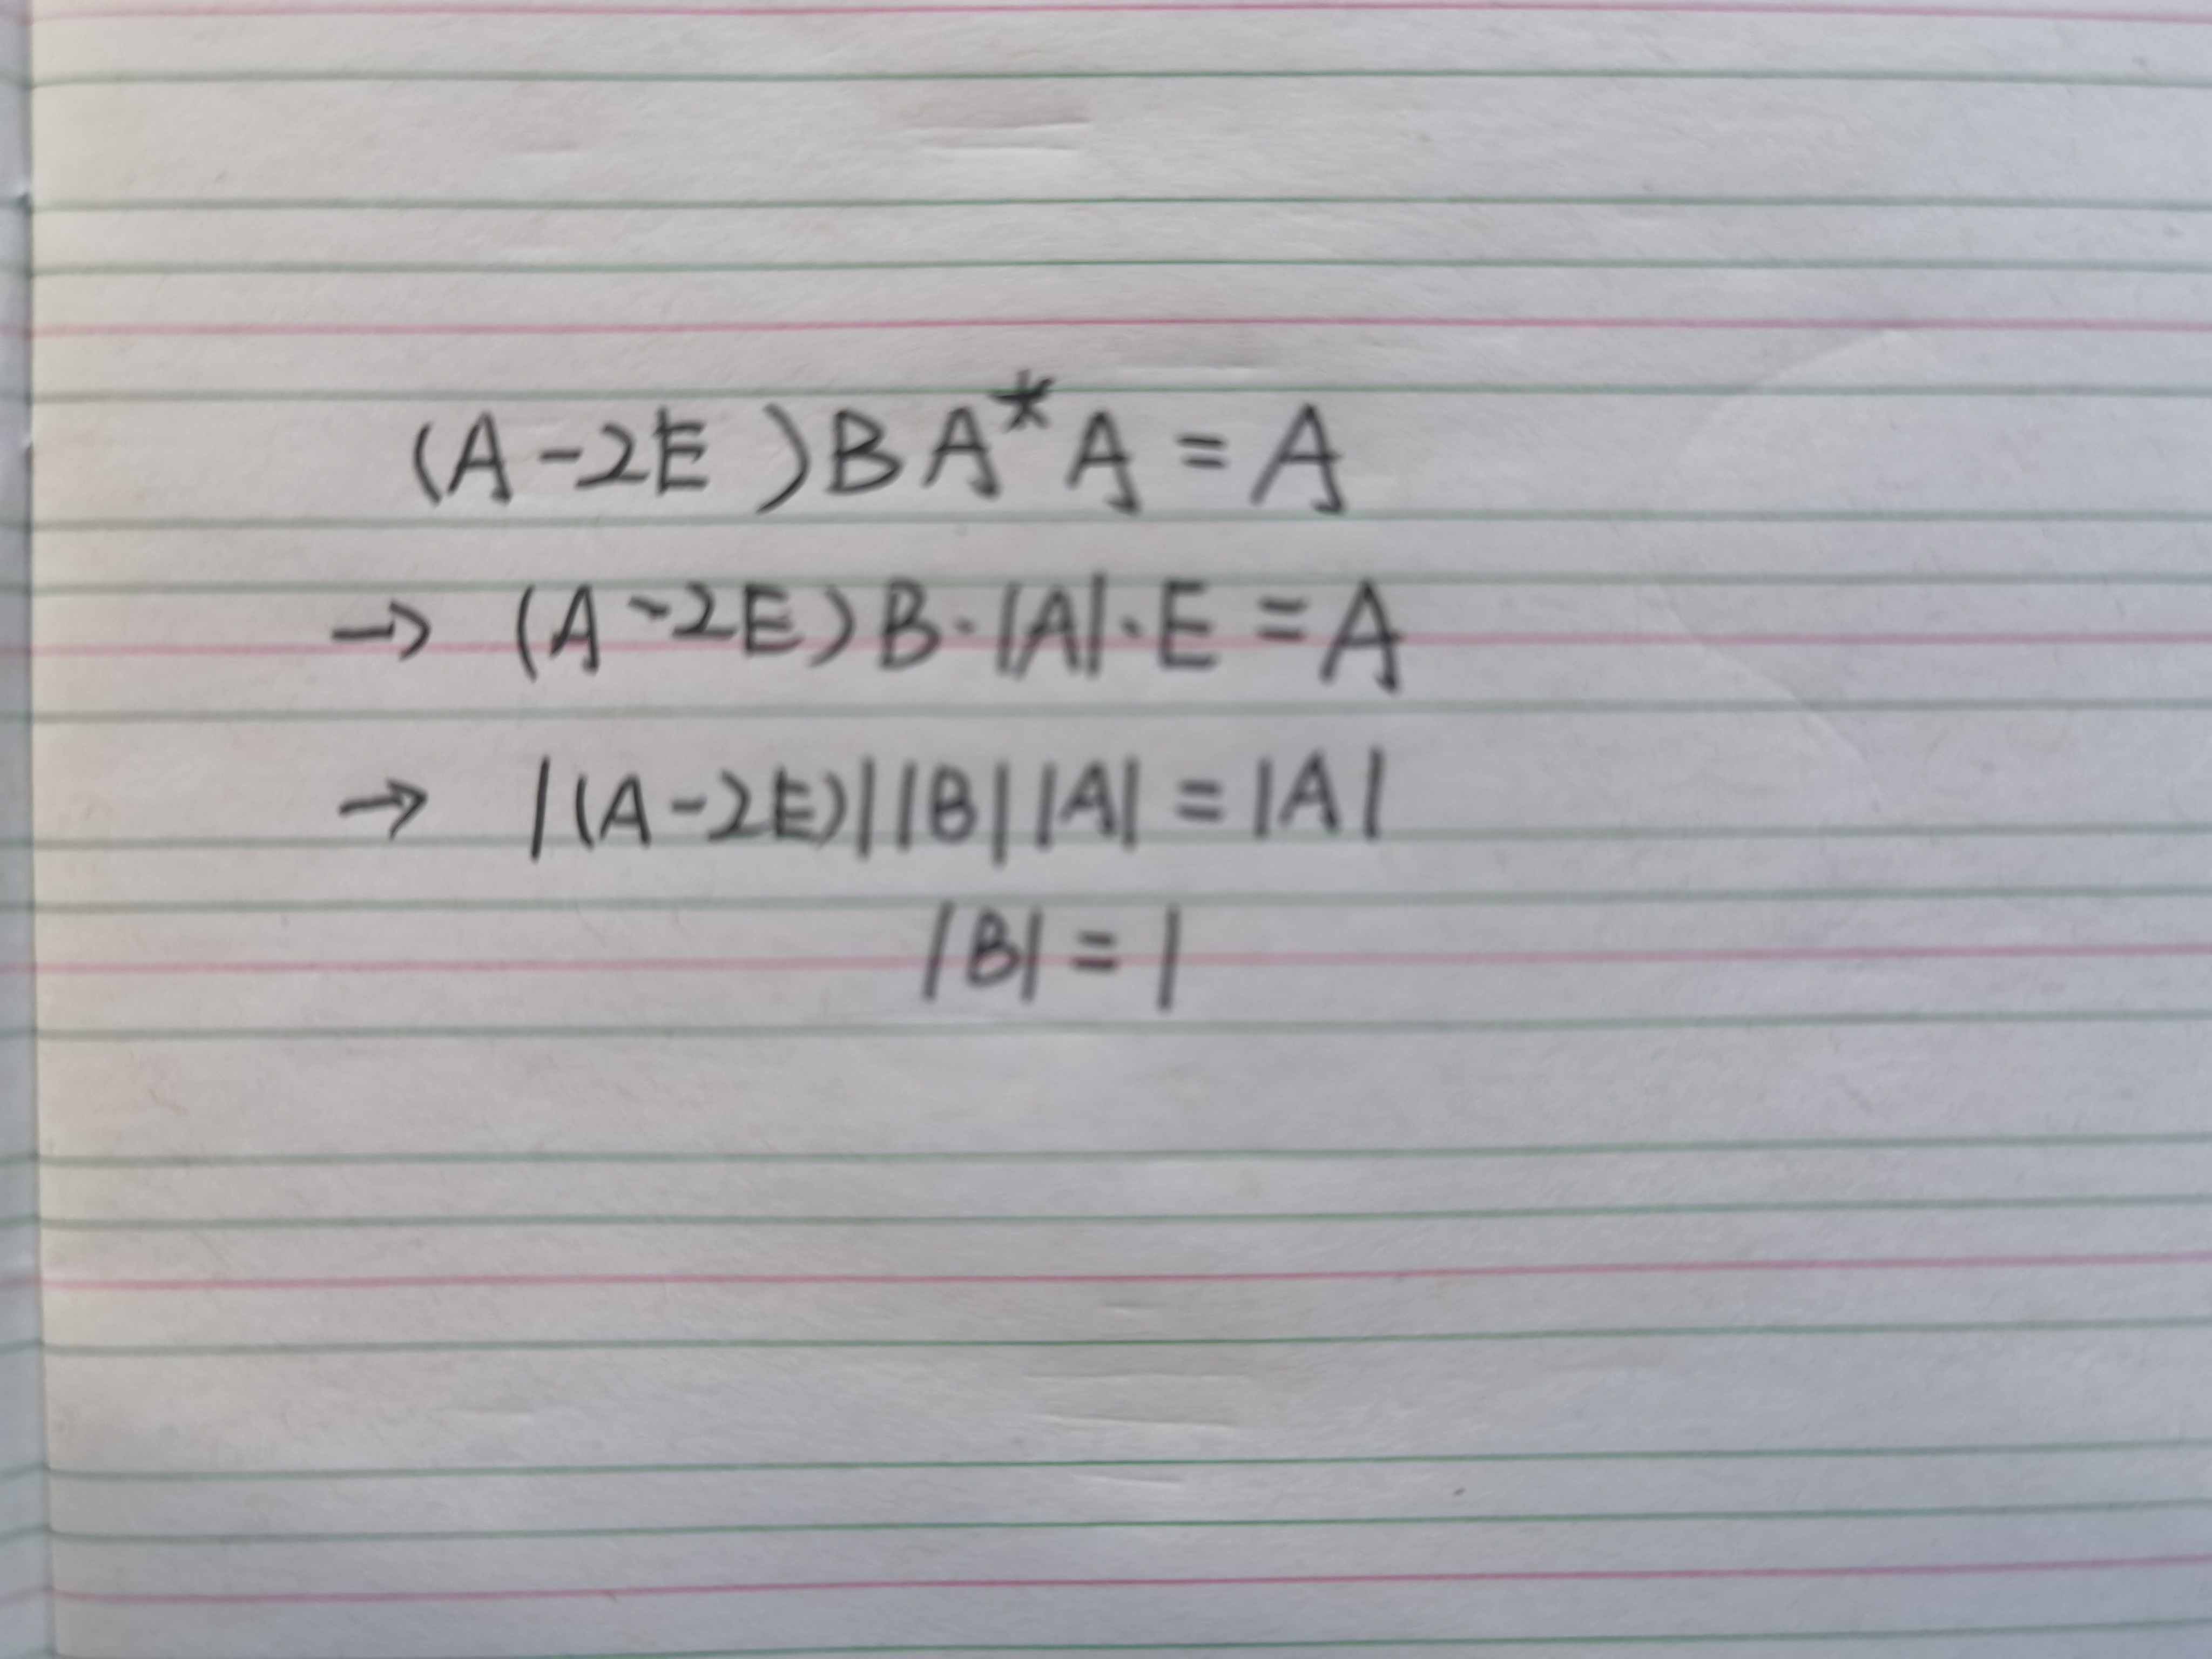 (A-2E)BA*A=A
→ (A-2E)B·|A|·E=A
→ |(A-2E)||B||A|=|A|
|B|=1